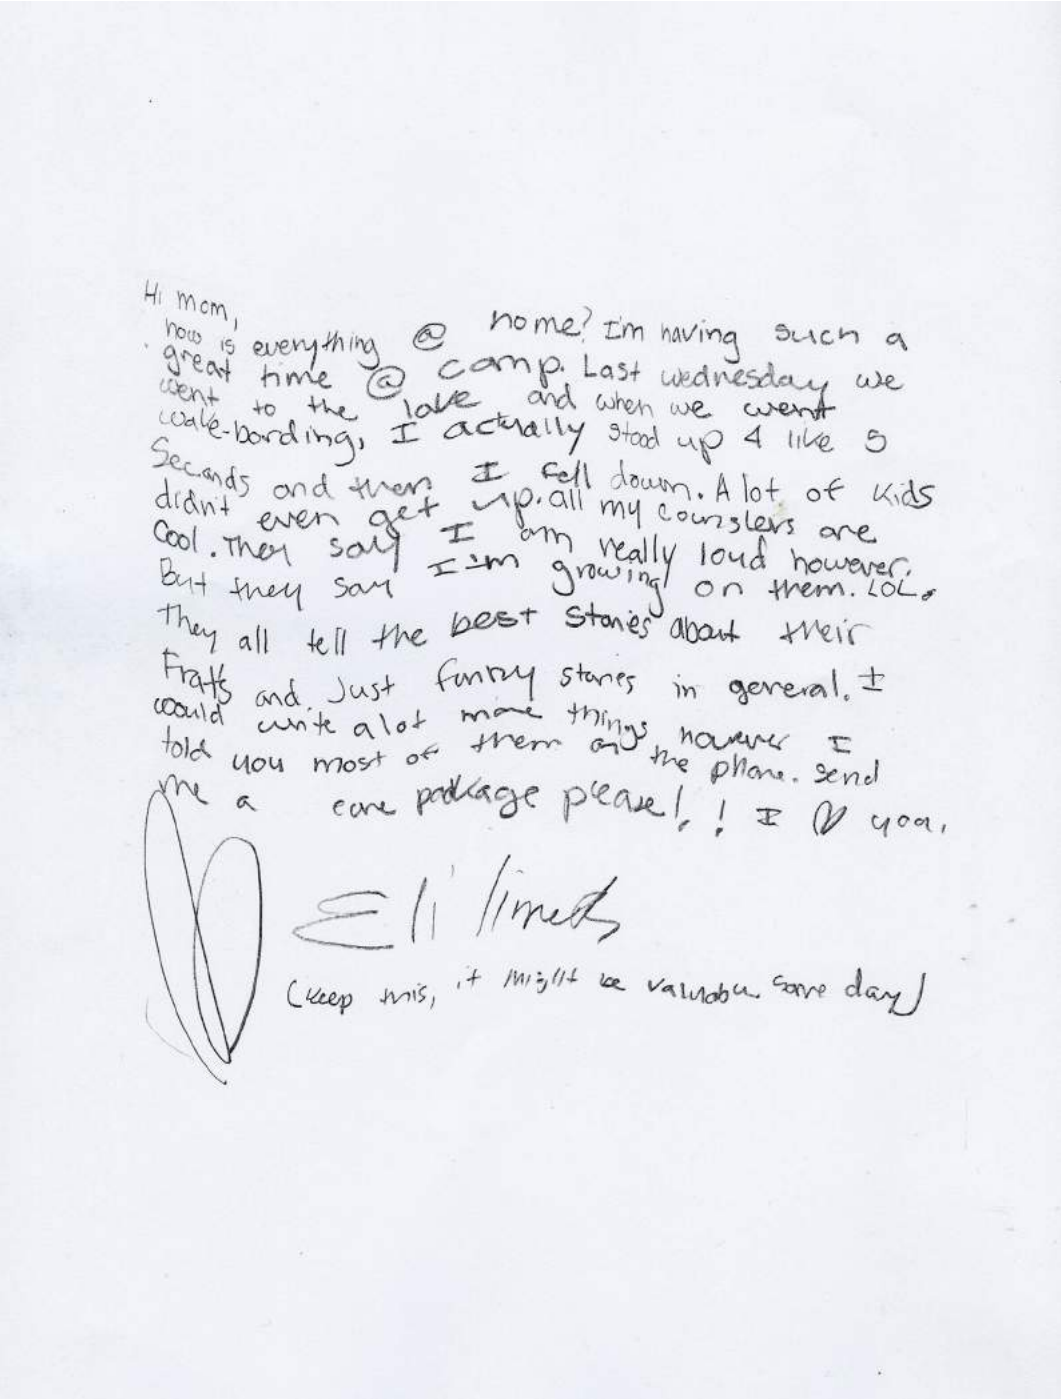 Hi mom,
how is everything @ home? I'm having such a
great time @ camp. Last wednesday we
went to the lake and when we went
wake-bording, I actually stood up 4 like 5
Seconds and then I fell down. A lot of kids
didn't even get up. all my counslers are
Cool. They say I am really loud however.
But they say I'm growing on them. LOL.
They all tell the best stories about their
Frats and Just funny stories in general. I
would write alot more things, however I
told you most of them on the phone. Send
me a care package please!! I ♡ you.
Eli
(keep this, it might be valuable some day)